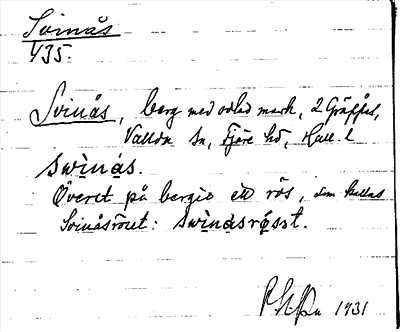 Svinås
435.
Svinås, berg med odlad mark, 2 Gräppås,
Vallda sn, Fjäre hd, Hall. l
swìnås.
Överst på berget ett rös, som kallas
Svinåsröset: swìnåsrøsst.
1931